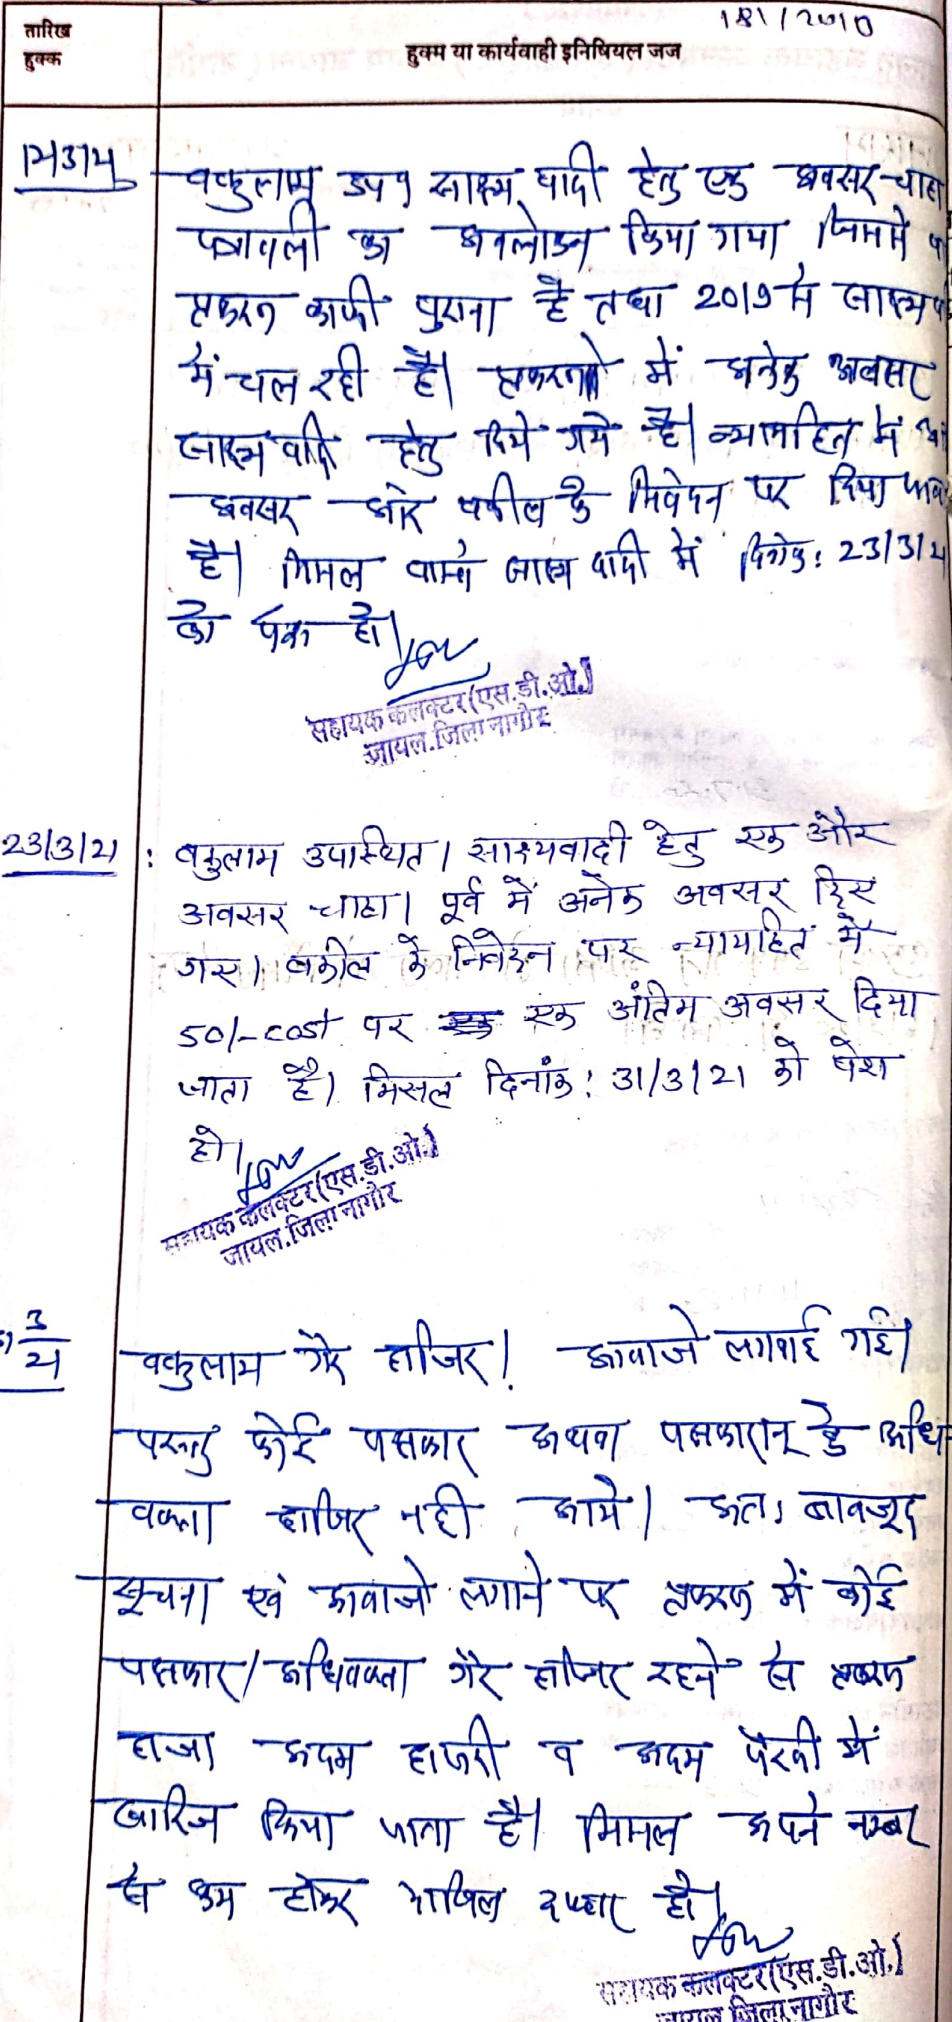 181/2010
तारिख
हुक्क
हुक्म या कार्यवाही इनिषियल जज
वकुलाम उप० साक्ष्य वादी हेतु एक अवसर चाहा
पत्रावली का अवलोकन किया गया जिसमें
प्रकरण काफी पुराना है तथा 2019 से साक्ष्य
में चल रही है। में अनेक अवसर
साक्ष्य वादी हेतु दिये गये है। न्यायहित में
अवसर और वकील के निवेदन पर दिया जाता
है। मिसल वास्ते साक्ष्य वादी में दिनांक: 23/3/21
को पेश हो।
सहायक कलक्टर(एस.डी.ओ.)
जायल.जिला नागौर
23/3/21 : वकुलाम उपस्थित। साक्ष्यवादी हेतु एक और
अवसर चाहा। पूर्व में अनेक अवसर दिए
गए। वकील के निवेदन पर न्यायहित में
50/- cost पर एक अंतिम अवसर दिया
जाता है। मिसल दिनांक: 31/3/21 को पेश
हो।
सहायक कलक्टर(एस.डी.ओ.)
जायल.जिला नागौर
वकुलाम गैर हाजिर। आवाजे लगवाई गई।
परन्तु कोई पक्षकार अथवा पक्षकारान् के अधि
वक्ता हाजिर नही आये। अतः बावजूद
सूचना एवं आवाजे लगाने पर प्रकरण में कोई
पक्षकार/अधिवक्ता गैर हाजिर रहने से प्रकरण
हाजा अदम हाजरी व अदम पैरवी में
खारिज किया जाता है। मिसल अपने नम्बर
से कम होकर दाखिल दफ्तर हो।
सहायक कलक्टर(एस.डी.ओ.)
जायल जिला नागौर